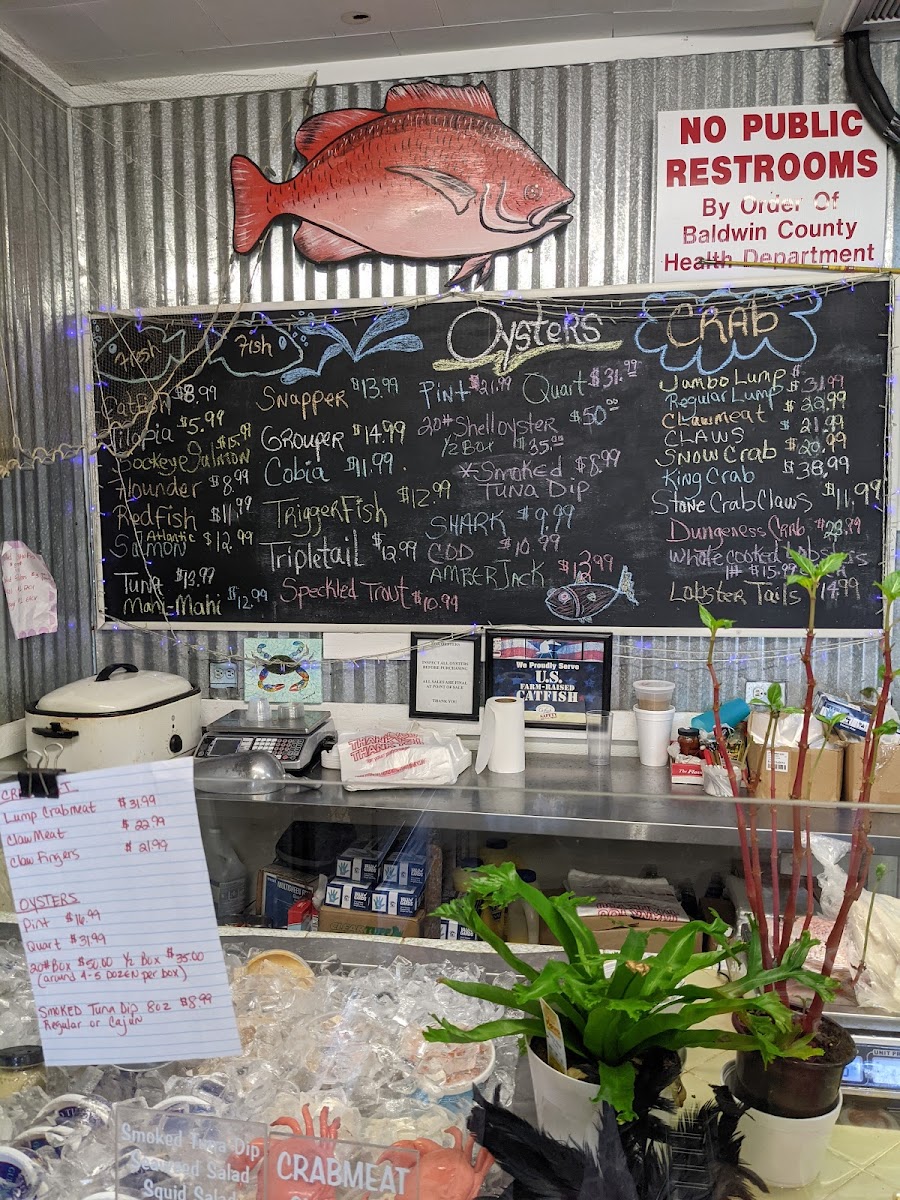 NO PUBLIC
RESTROOMS
By Order Of
Baldwin County
Health Department
Fresh Fish
Catfish $8.99
Tilapia $5.99
Sockeye Salmon $15.99
Flounder $8.99
Redfish $11.99
Atlantic
Salmon $12.99
Tuna $13.99
Mahi-Mahi $12.99
Snapper $13.99
Grouper $14.99
Cobia $11.99
TriggerFish $12.99
Tripletail $12.99
Speckled Trout $10.99
Oysters
Pint $21.99 Quart $31.99
20# Shelloyster $50.00
1/2 Box $35.00
*Smoked $8.99
Tuna Dip
SHARK $9.99
COD $10.99
AMBERJACK $13.99
CRAb
Jumbo Lump $31.99
Regular Lump $22.99
Clawmeat $21.99
CLAWS
Snow Crab
King Crab $38.99
Stone Crab Claws $11.99
Dungeness Crab
whole cooked Lobsters
1# $15.99
Lobster Tails 14.99
INSPECT ALL OYSTERS
BEFORE PURCHASING
ALL SALES ARE FINAL
AT POINT OF SALE
THANK YOU
We Proudly Serve
U.S.
FARM-RAISED
CATFISH
THANK YOU
Lump Crabmeat $31.99
Claw Meat $22.99
Claw Fingers $21.99
OYSTERS
Pint $16.99
Quart $31.99
20# Box $50.00 1/2 Box $35.00
(around 4-5 DOZEN per box)
SMOKED Tuna Dip 8oz $8.99
Regular or Cajun
Smoked Tuna Dip
Seaweed Salad
Squid Salad
CRABMEAT